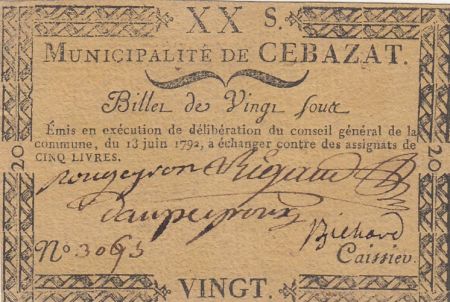 XX S.
MUNICIPALITÉ DE CEBAZAT.
Billet de Vingt sous
Émis en exécution de délibération du conseil général de la
commune, du 13 juin 1792, a échanger contre des assignats de
CINQ LIVRES.
20
20
Rougeyron Rigaud
N° 3095
Richard
Caissier
VINGT.